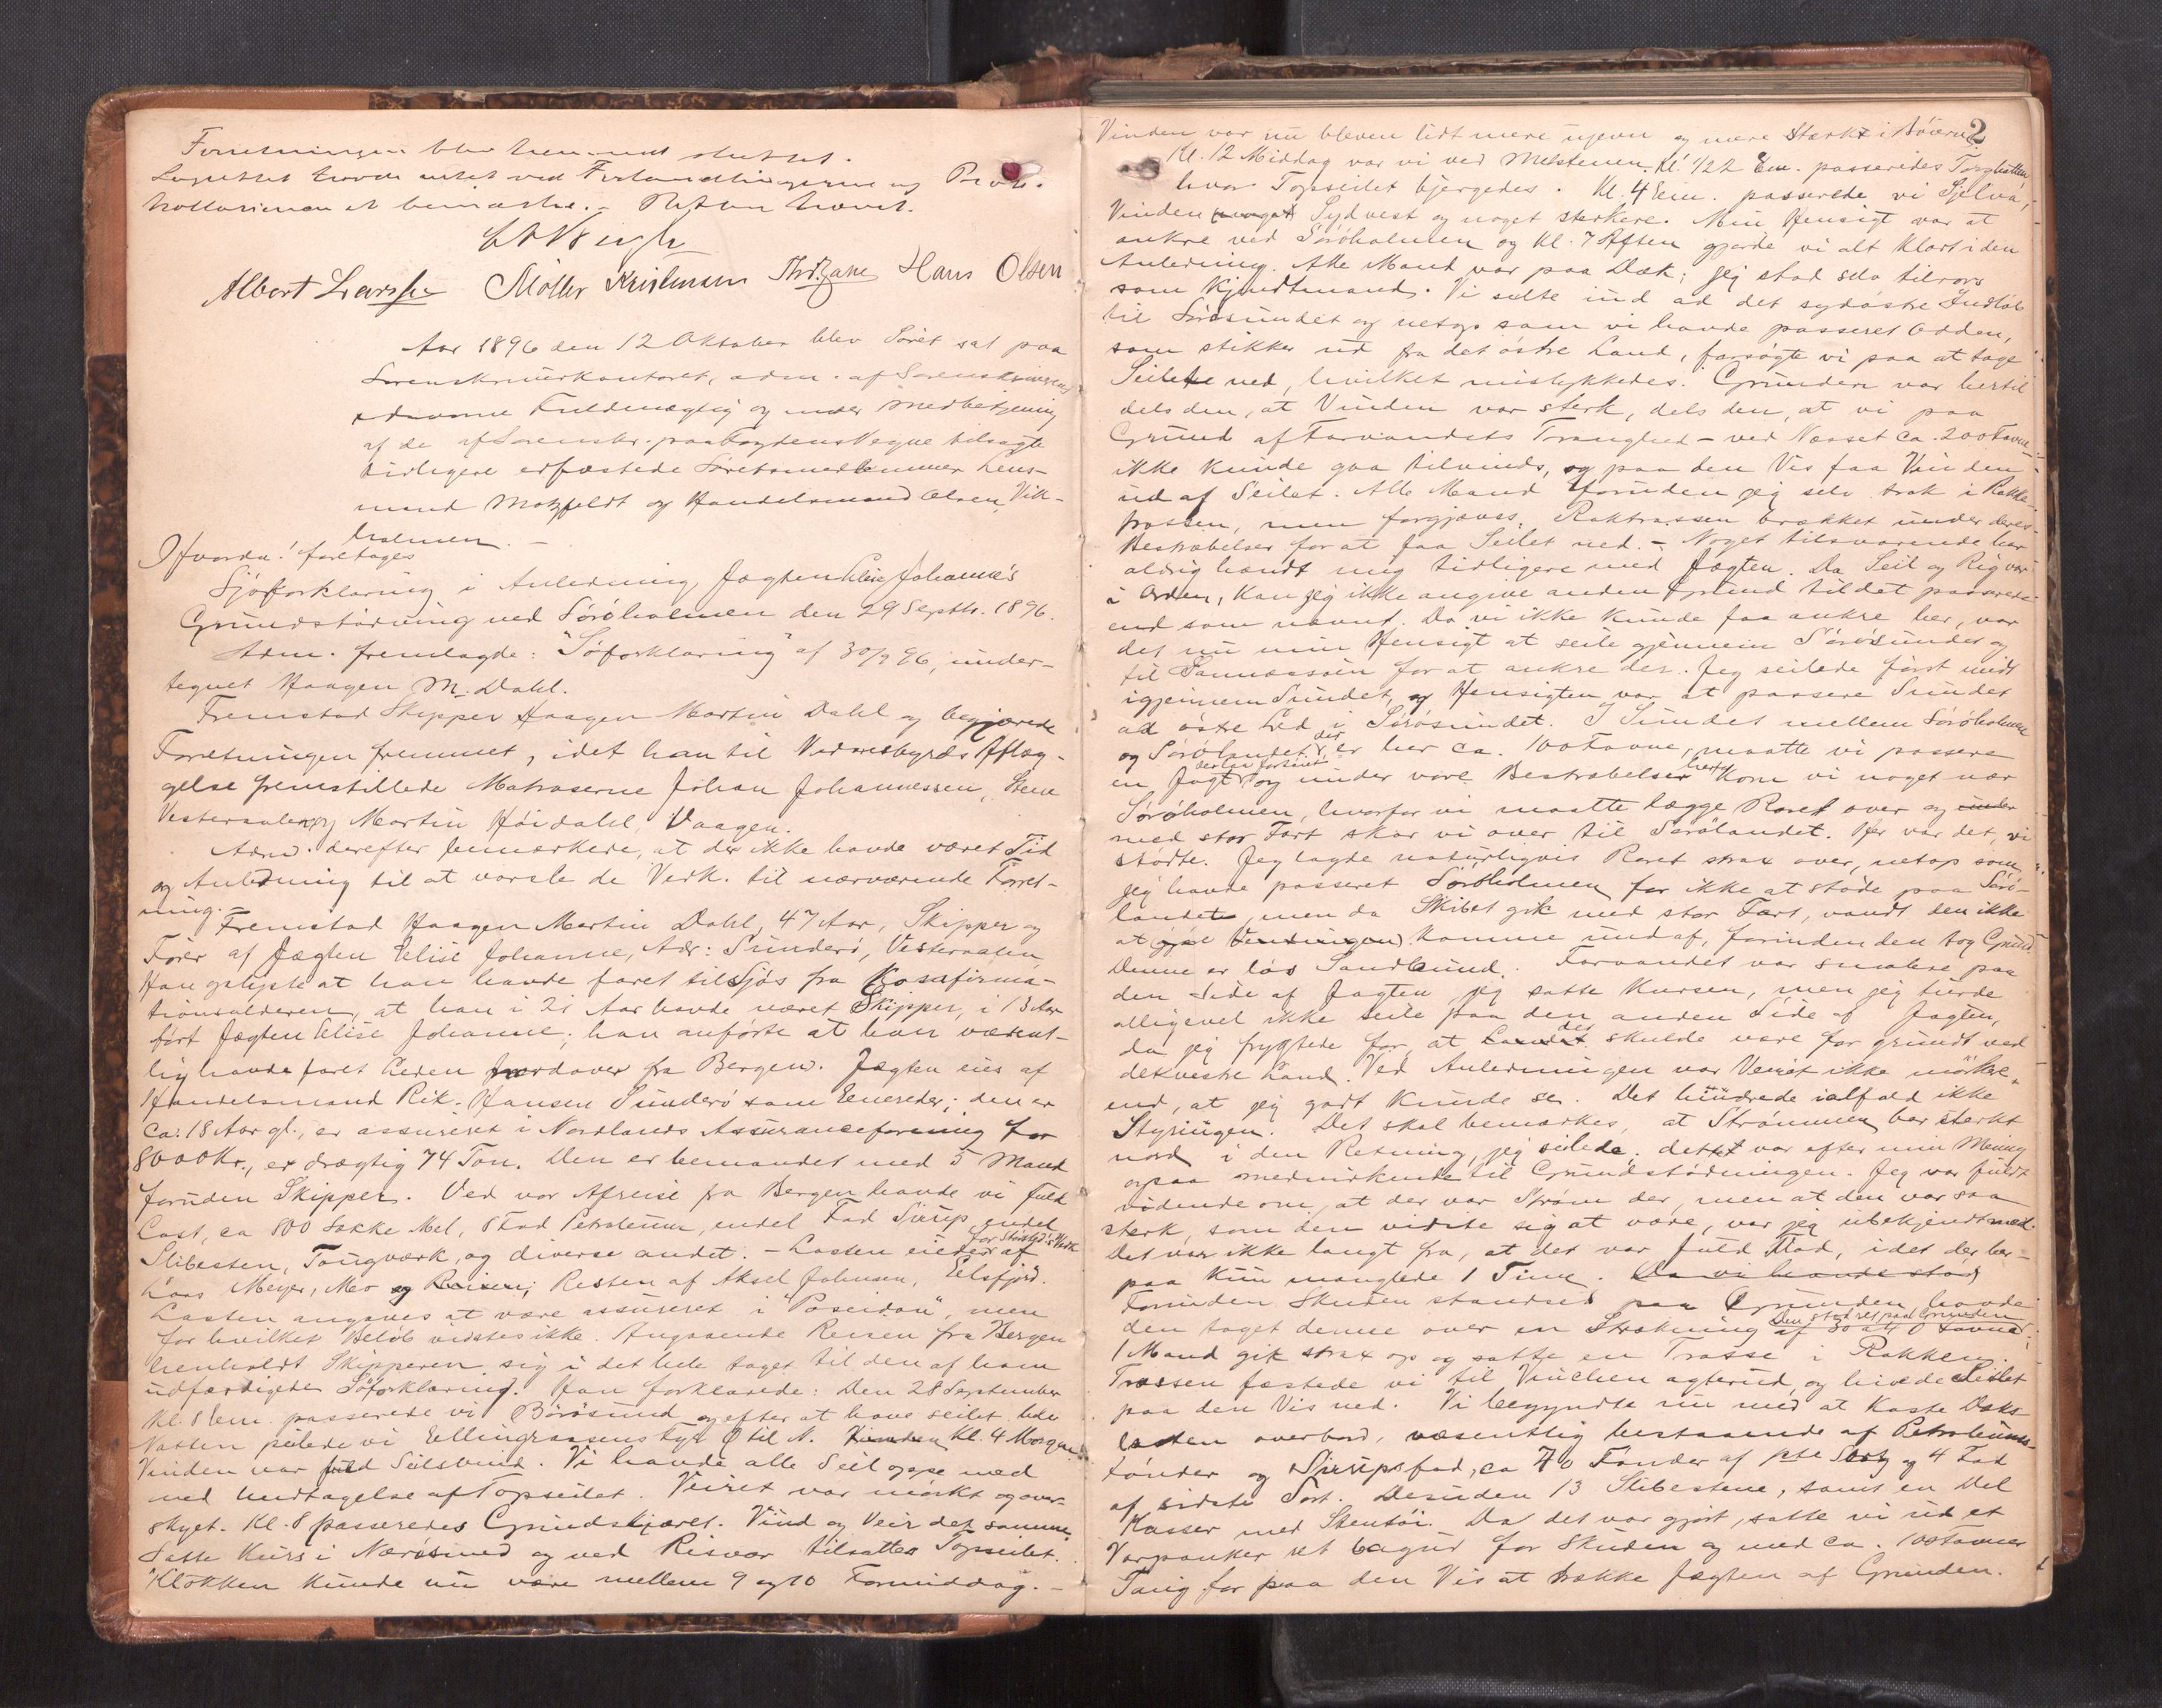 Forretningen blev hermed sluttet.
Lagrettet havde intet ved Forhandlingerne og Proto-
kollationen at bemærke. – Retten hævet.
Albert Larssen Møller Kristensen Hans Olsen
Aar 1896 den 12 Oktober blev Søret sat paa
Sorenskriverkontoret, adm. af Sorenskriverens
edsvorne Fuldmægtig og under Medbetjening
af de af Sorenskr. paa Fogdens Vegne tilsagte
tidligere edfæstede Søretsmedlemmer Lens-
mand Motzfeldt og Handelsmand Olsen, Vik-
holmen. –
Hvorda! foretoges
Sjøforklaring i Anledning Jagten Elise Johanne's
Grundstødning ved Sørøholmen den 29 Septbr. 1896.
Adm. fremlagde: "Søforklaring" af 30/9 96, under-
tegnet Haagen M. Dahl.
Fremstod Skipper Haagen Martin Dahl og begjærede
Forretningen fremmet, idet han til Vidnesbyrds Aflæg-
gelse fremstillede Matroserne Johan Johannessen, Steve
Vesteraalen og Martin Høidahl, Vaagen.
Adm. derefter bemærkede, at der ikke havde været Tid
og Anledning til at varsle de Vedk. til nærværende Forret-
ning. –
Fremstod Haagen Martin Dahl, 47 Aar, Skipper og
Fører af Jægten Elise Johanne, Adr: Sunderø, Vesteraalen
Han oplyste at han havde faret tilsjøs fra Konfirma-
tionsalderen, at han i 21 Aar havde været Skipper, i 13 Aar
ført Jægten Elise Johanne; han anførte at han væsent-
lig havde faret Leden nordover fra Bergen. Jægten eies af
Handelsmand Rik. Hansen Sunderø som Enereder; den er
ca. 18 Aar gl., er assureret i Nordlands Assuranceforening for
8000 Kr., er drægtig 74 Ton. Den er bemandet med 5 Mand
foruden Skipper. Ved vor Afreise fra Bergen havde vi fuld
Last, ca 800 Sække Mel, 8 Fad Petroleum, endel Fad Sirup, endel
Slibesten, Tougværk, og diverse andet. – Lasten eiedes af
Lars Meyer, Mo og Resten af Aksel Johnsen, Elsfjord.
Lasten angaves at være assureret i "Poseidon", men
for hvilket Beløb vidstes ikke. Angaaende Reisen fra Bergen
henholdt Skipperen sig i det hele taget til den af ham
udfærdigede Søforklaring. Han forklarede: Den 28 September
Kl. 8 Em. passerede vi Børøsund og efter at have seilet hele
Natten peilede vi Ellingraasens Fyr Ø til N. Kl. 4 Morgen
Vinden var fuld Seilsvind. Vi havde alle Seil oppe med
med Undtagelse af Topseilet. Veiret var mørkt og over-
skyet. Kl. 8 passeredes Grundskjæret. Vind og Veir det samme.
Satte Kurs i Nærøsund og ved Risvær tilsattes Topseilet.
Klokken kunde nu være mellem 9 og 10 Formiddag. –
2
Vinden var nu bleven lidt mere ujevn og mere stærkt i Bøierne
Kl. 12 Middag var vi ved Melstenen. Kl. 1/2 2 Em. passeredes Torghatten
hvor Topseilet bjergedes. Kl. 4 Em. passerede vi Sjelvå,
Vinden Sydvest og noget stærkere. Min Hensigt var at
ankre ved Sørøholmen og Kl. 7 Aften gjorde vi alt klart i den
Anledning. Alle Mand var paa Dæk; jeg stod selv tilrors
som Kjendtmand. Vi seilte ind ad det sydøstre Indløb
til Sørøsundet og netop som vi havde passeret Odden,
som stikker ud fra det østre Land, forsøgte vi paa at tage
Seilet ned, hvilket mislykkedes. Grunden var hertil
dels den, at Vinden var sterk, dels den, at vi paa
Grund af Farvandets Tranghed – ved Næsset ca. 200 Favne –
ikke kunde gaa tilvinds, og paa den Vis faa Vinden
ud af Seilet. Alle Mand foruden jeg selv trak i Rakke-
trossen, men forgjæves. Raktrossen brækket under deres
Bestræbelser for at faa Seilet ned. – Noget tilsvarende har
aldrig hændt mig tidligere med Jægten. Da Seil og Rig var
i Orden, kan jeg ikke angive anden Grund til det passerede
end som nævnt. Da vi ikke kunde faa ankre her, var
det nu min Hensigt at seile gjennem Sørøsundet og
til Sannessøen for at ankre der. Jeg seilede først midt
igjennem Sundet, og Hensigten var at passere Sundet
ad østre Led i Sørøsundet. I Sundet mellem Sørøholmen
og Sørølandet, der er her ca. 100 Favne, maatte vi passere
en Jagt der laa fortøiet og under vore Bestræbelser herfor kom vi noget nær
Sørøholmen, hvorfor vi maatte lægge Roret over og under
med stor Fart skar vi over til Sørølandet. Her var det, vi
stødte. Jeg lagde naturligvis Roret strax over, netop som
jeg havde passeret Sørøholmen for ikke at støde paa Sørø-
landet, men da Skibet gik med stor Fart, vandt den ikke
at komme undaf, forinden den tog Grund.
Denne er løs Sandbund. Farvandet var smalere paa
den Side af Jagten, jeg satte Kursen, men jeg turde
alligevel ikke seile paa den anden Side af Jagten,
da jeg frygtede for, at det skulde være for grundt ved
det vestre Land. Ved Anledningen var Veiret ikke mørkere
end, at jeg godt kunde se. Det hindrede ialfald ikke
Styringen. Det skal bemærkes, at Strømmen bar sterkt
nord i den Retning, jeg seilede. dette var efter min Mening
ogsaa medvirkende til Grundstødningen. Jeg var fuldt
vidende om, at der var Strøm der, men at den var saa
sterk, som den vidste sig at være, var jeg ubekjendt med.
Det var ikke langt fra, at det var fuld Flod, idet der her-
paa kun manglede 1 Time. Da vi havde stødt
Foruden Skuden standsed paa Grunden havde
den taget denne over en Strækning af 30 a 40 Favne. Den stod ret paa Grunden
1 Mand gik strax op og satte en Trosse i Rakken.
Trossen fæstede vi til Vinchen agterud, og hivede Seilet
paa den Vis ned. Vi begyndte nu med at kaste Dæks-
lasten overbord, væsentlig bestaaende af Petroleums-
tønder og Sirupsfad, ca 70 Tønder af 1ste Sort og 4 Fad
af sidste Sort. Desuden 13 Slibestene, samt en Del
Kasser med Stentøi. Da det var gjort, satte vi ud et
Varpanker ret bagud for Skuden og med ca. 100 Favner
Taug for paa den Vis at trække Jægten af Grunden.